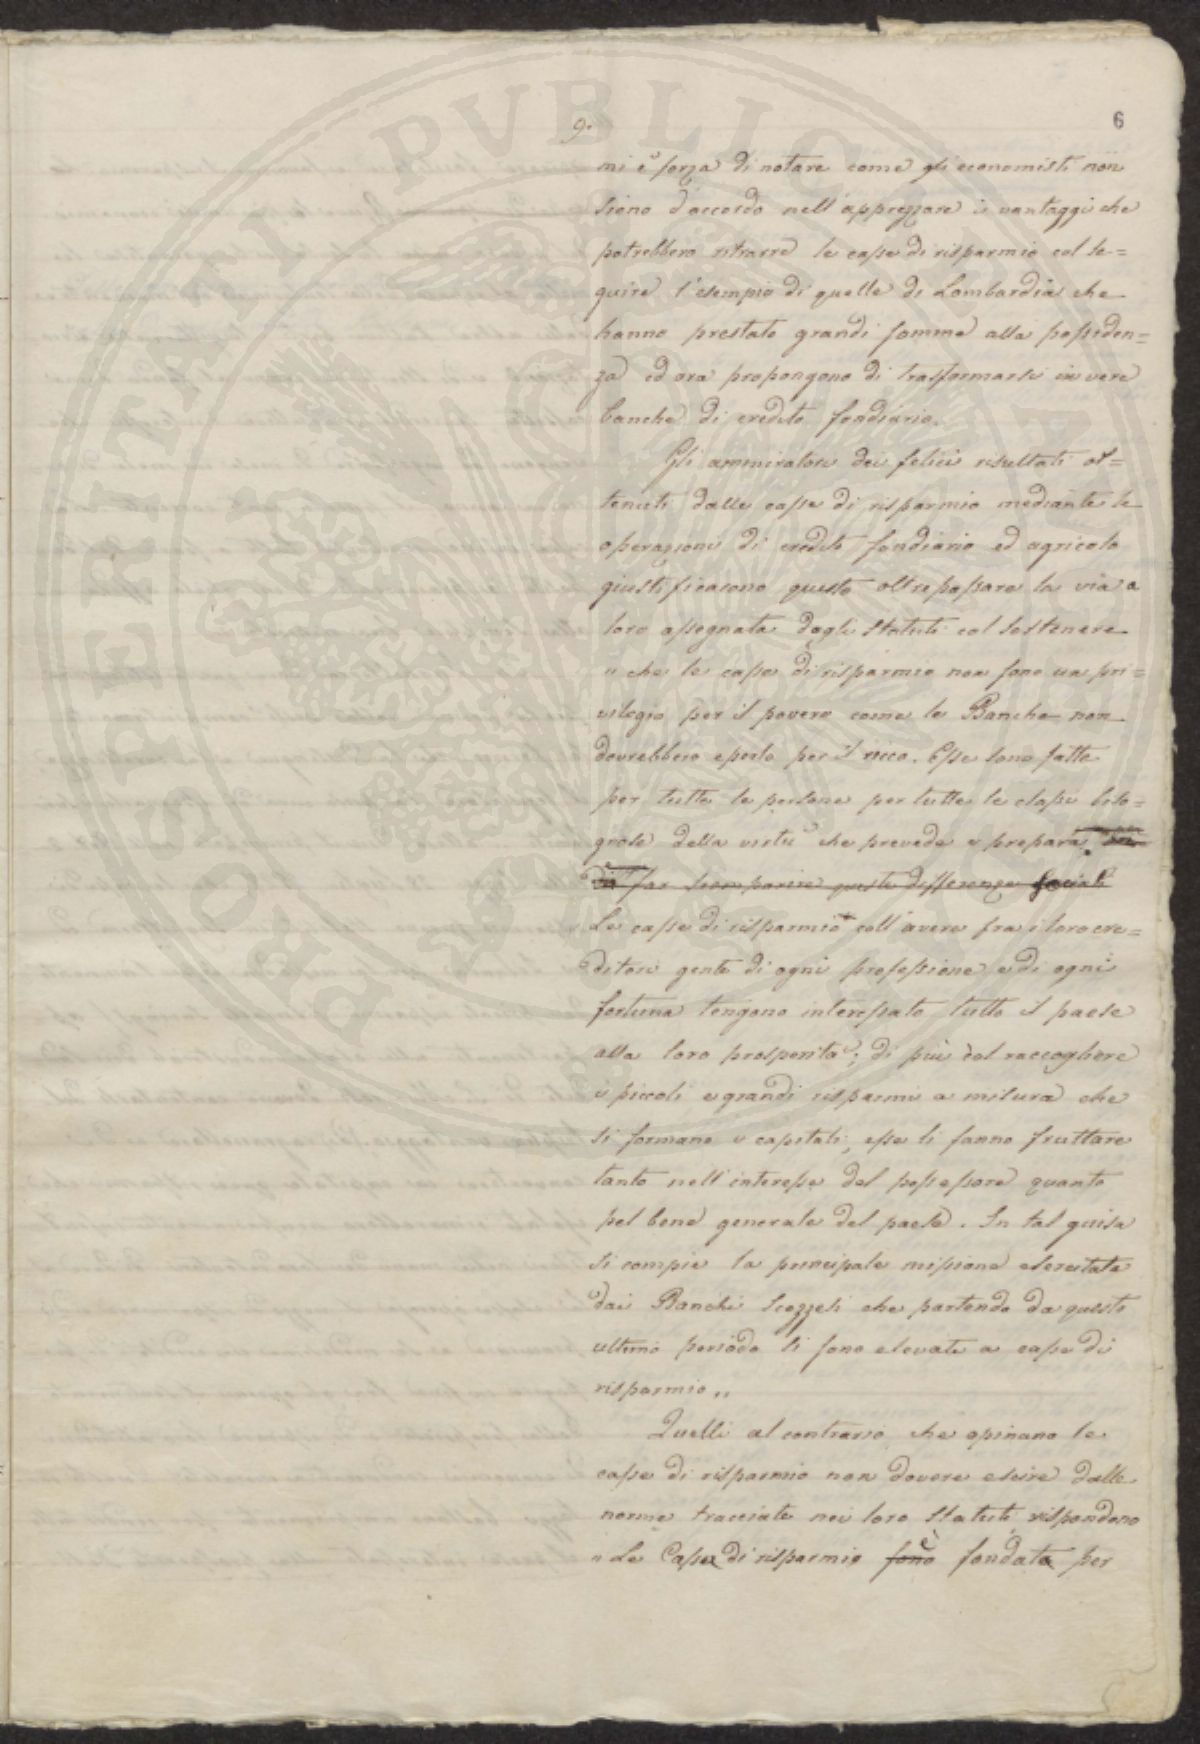 PROSPERITATI PVBLIC
9.
6
mi è forza di notare come gli economisti non
siano d'accordo nell'apprezzare i vantaggi che
potrebbero ritrarre le casse di risparmio col se=
guire l'esempio di quelle di Lombardia che
hanno prestato grandi somme alla possiden=
za ed ora propongono di trasformarsi in vere
banche di credito fondiario.
Gli ammiratori dei felici risultati ot=
tenuti dalle casse di risparmio mediante le
operazioni di credito fondiario ed agricolo
giustificarono questo oltrepassare la via a
loro assegnata dagli statuti col sostenere
" che le casse di risparmio non sono un pri=
vilegio per il povero come le Banche non
dovrebbero esserlo per il ricco. Esse sono fatte
per tutte le persone per tutte le classi biso=
gnose della virtù che prevede e prepara
di far scomparire queste differenze sociali
Le casse di risparmio coll'avere fra i loro cre=
ditori gente di ogni professione e di ogni
fortuna tengono interessato tutto il paese
alla loro prosperità; di più col raccogliere
i piccoli e grandi risparmi a misura che
si formano i capitali, esse li fanno fruttare
tanto nell'interesse del possessore quanto
pel bene generale del paese. In tal guisa
si compie la principale missione esercitata
dai Banchi Scozzesi che partendo da questo
ultimo periodo si sono elevate a casse di
risparmio „
Quelli al contrario che opinano le
casse di risparmio non dovere escire dalle
norme tracciate nei loro statuti, rispondono
è
" Le Casse di risparmio sono fondata per